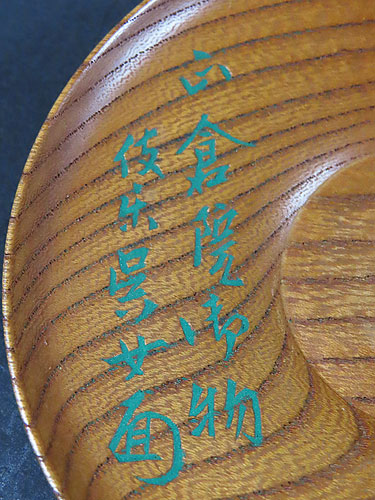 正倉院御物
伎楽呉女面